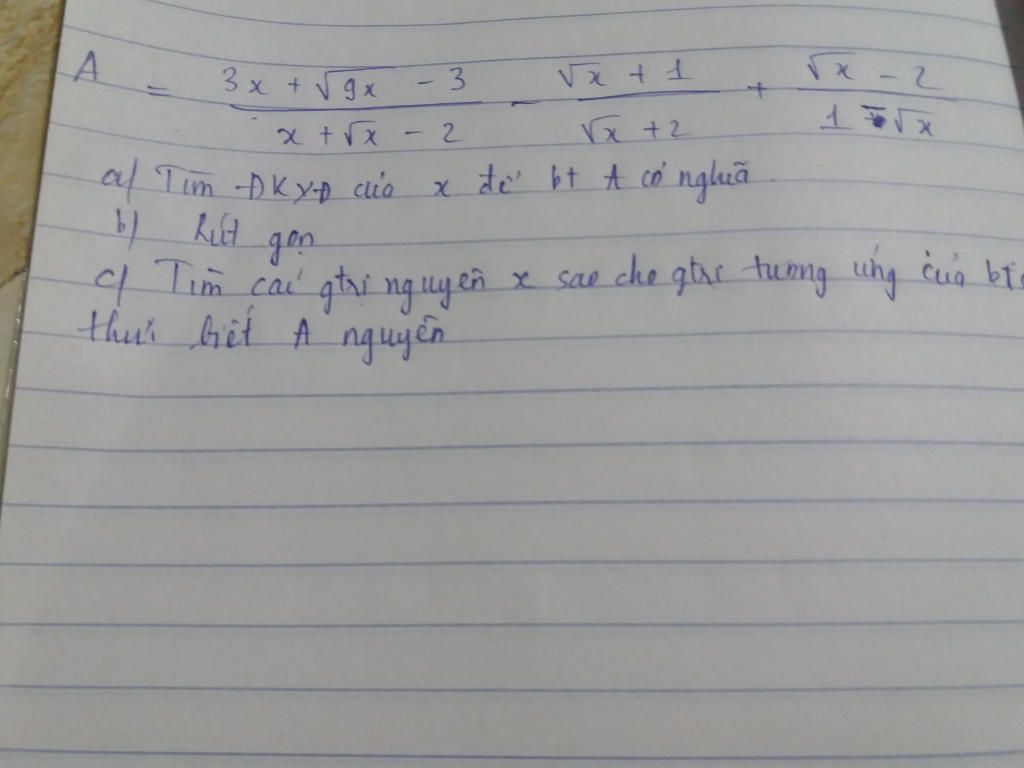 A = \frac{3x + \sqrt{9x} - 3}{x + \sqrt{x} - 2} - \frac{\sqrt{x} + 1}{\sqrt{x} + 2} + \frac{\sqrt{x} - 2}{1 - \sqrt{x}}
a) Tìm ĐKXĐ của x để bt A có nghĩã
b) Rút gọn
c) Tìm các gtrị nguyên x sao cho gtrị tương ứng của bt
thức biết A nguyên